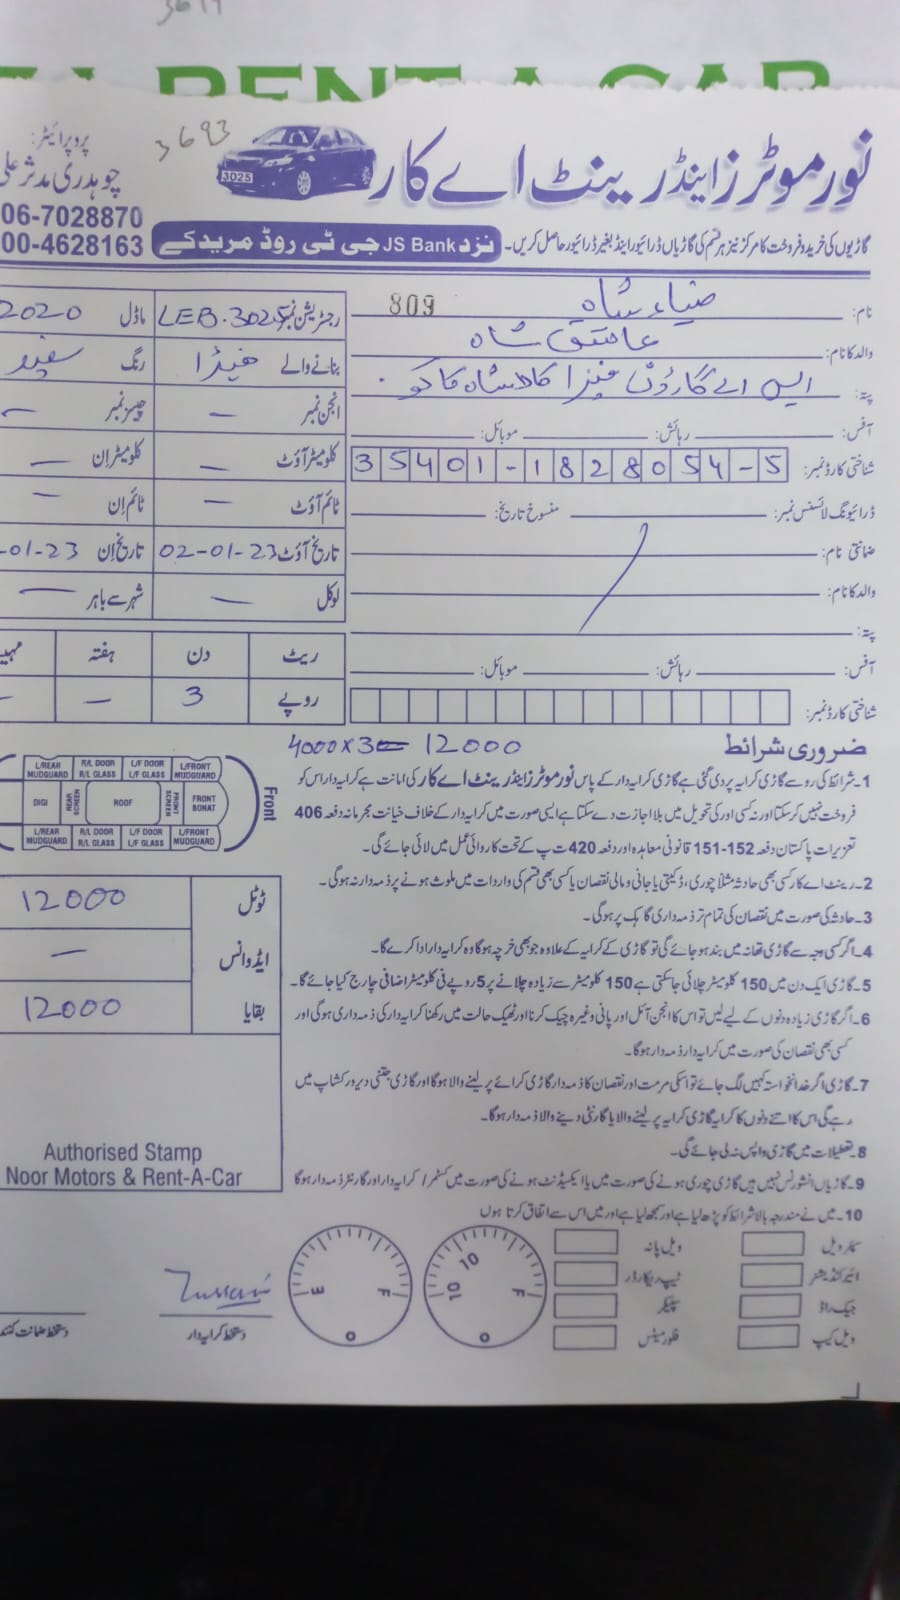 3693
نور موٹرز اینڈ رینٹ اے کار
3025
پروپرائیٹر:
چوہدری مدثر علی
06-7028870
00-4628163
نزد JS Bank جی ٹی روڈ مریدکے
گاڑیوں کی خرید و فروخت کا مرکز نیز ہر قسم کی گاڑیاں ڈرائیور اینڈ بغیر ڈرائیور حاصل کریں۔
نام: ضیاء شاہ 809
والد کا نام: عاشق شاہ
پتہ: ایس اے گارڈن
آفس: رہائش: موبائل:
شناختی کارڈ نمبر: 35401-1828054-5
ڈرائیونگ لائسنس نمبر: منسوخ تاریخ:
ضمانتی نام:
والد کا نام:
پتہ:
آفس: رہائش: موبائل:
شناختی کارڈ نمبر:
رجسٹریشن نمبر LEB.3025 ماڈل 2020
بنانے والے ھنڈا رنگ سفید
انجن نمبر — چیسز نمبر —
کلومیٹر آؤٹ — کلومیٹر اِن —
ٹائم آؤٹ — ٹائم اِن —
تاریخ آؤٹ 02-01-23 تاریخ اِن -01-23
لوکل — شہر سے باہر —
ریٹ دن ہفتہ
روپے 3 — —
4000x3= 12000
ضروری شرائط
1۔ شرائط کی رو سے گاڑی کرایہ پر دی گئی ہے گاڑی کرایہ دار کے پاس نور موٹرز اینڈ رینٹ اے کار کی امانت ہے کرایہ دار اس کو
فروخت نہیں کر سکتا اور نہ کسی اور کی تحویل میں بلا اجازت دے سکتا ہے ایسی صورت میں کرایہ دار کے خلاف خیانت مجرمانہ دفعہ 406
تعزیرات پاکستان دفعہ 152-151 قانونی معاہدہ اور دفعہ 420 ت پ کے تحت کاروائی عمل میں لائی جائے گی۔
2۔ رینٹ اے کار کسی بھی حادثہ مثلاً چوری، ڈکیتی یا جانی و مالی نقصان یا کسی بھی قسم کی واردات میں ملوث ہونے پر ذمہ دار نہ ہوگی۔
3۔ حادثہ کی صورت میں نقصان کی تمام تر ذمہ داری گاہک پر ہوگی۔
4۔ اگر کسی وجہ سے گاڑی تھانہ میں بند ہو جائے گی تو گاڑی کے کرایہ کے علاوہ جو بھی خرچہ ہوگا وہ کرایہ دار ادا کرے گا۔
5۔ گاڑی ایک دن میں 150 کلومیٹر چلائی جا سکتی ہے 150 کلومیٹر سے زیادہ چلانے پر 5 روپے فی کلومیٹر اضافی چارج کیا جائے گا۔
6۔ اگر گاڑی زیادہ دنوں کے لیے لیں تو اس کا انجن آئل اور پانی وغیرہ چیک کرنا اور ٹھیک حالت میں رکھنا کرایہ دار کی ذمہ داری ہوگی اور
کسی بھی نقصان کی صورت میں کرایہ دار ذمہ دار ہوگا۔
7۔ گاڑی اگر خدانخواستہ کہیں لگ جائے تو اسکی مرمت اور نقصان کا ذمہ دار گاڑی کرائے پر لینے والا ہوگا اور گاڑی جتنی دیر ورکشاپ میں
رہے گی اس کا اتنے دنوں کا کرایہ گاڑی کرایہ پر لینے والا یا گارنٹی دینے والا ذمہ دار ہوگا۔
8۔ تعطیلات میں گاڑی واپس نہ لی جائے گی۔
9۔ گاڑیاں انشورنس نہیں ہیں گاڑی چوری ہونے کی صورت میں یا ایکسیڈنٹ ہونے کی صورت میں کسٹمر / کرایہ دار اور گارنٹر ذمہ دار ہوگا
10۔ میں نے مندرجہ بالا شرائط کو پڑھ لیا ہے اور سمجھ لیا ہے اور میں اس سے اتفاق کرتا ہوں
L/REAR MUDGUARD R/L DOOR R/L GLASS L/F DOOR L/F GLASS L/FRONT MUDGUARD
DIGI REAR SCREEN ROOF FRONT SCREEN FRONT BONAT
L/REAR MUDGUARD R/L DOOR R/L GLASS L/F DOOR L/F GLASS L/FRONT MUDGUARD
Front
ٹوٹل 12000
ایڈوانس —
بقایا 12000
Authorised Stamp
Noor Motors & Rent-A-Car
ویل پانہ
ائیرکنڈیشنر ٹیپ ریکارڈر
جیک راڈ سپیکر
ویل کیپ فلور میٹس
E F O
10 10 F O
دستخط کرایہ دار
دستخط ضمانت کنندہ